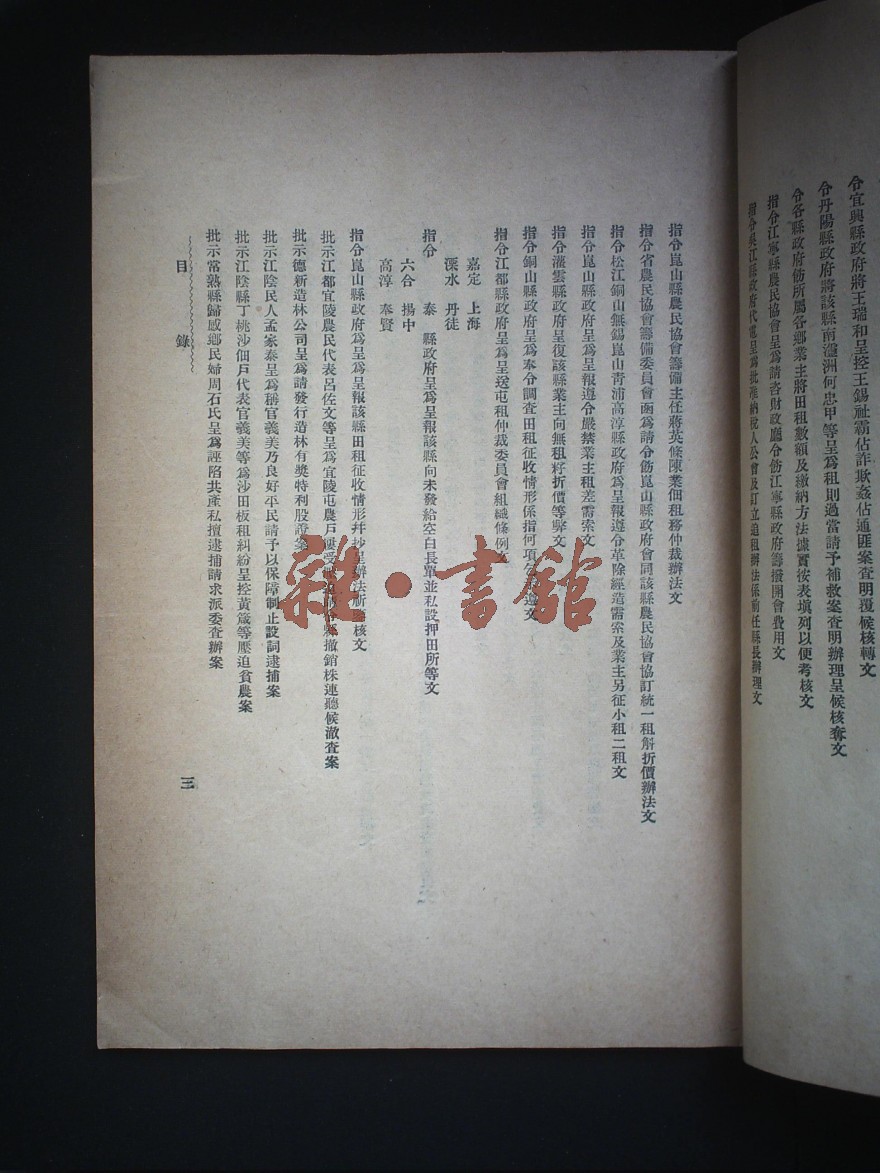 令宜興縣政府將王瑞和呈控王錫祉霸佔詐欺姦佔通匪案查明覆候核轉文
令丹陽縣政府將該縣南瀘洲何忠甲等呈爲租則過當請予補救案查明辦理呈候核奪文
令各縣政府飭所屬各鄉業主將田租數額及繳納方法據實按表填列以便考核文
指令江寧縣農民協會呈爲請咨財政廳令飭江寧縣政府籌撥開會費用文
指令吳江縣政府代電呈爲批准納稅人公會及訂立追租辦法係前任縣長辦理文
指令崑山縣農民協會籌備主任蔣英條陳業佃租務仲裁辦法文
指令省農民協會籌備委員會函爲請令飭崑山縣政府會同該縣農民協會協訂統一租斛折價辦法文
指令松江銅山無錫崑山青浦高淳縣政府爲呈報遵令革除經造需索及業主另征小租二租文
指令崑山縣政府呈爲呈報遵令嚴禁業主租差需索文
指令灌雲縣政府呈復該縣業主向無租籽折價等弊文
指令銅山縣政府呈爲奉令調查田租征收情形係指何項 遵文
指令江都縣政府呈爲呈送屯租仲裁委員會組織條例文
嘉定 上海
溧水 丹徒
指令 泰 縣政府呈爲呈報該縣向未發給空白長單並私設押田所等文
六合 揚中
高淳 奉賢
指令崑山縣政府爲呈報該縣田租征收情形幷抄呈辦法祈 核文
批示江都宜陵農民代表呂佐文等呈爲宜陵屯農戶屢受 縣撤銷株連聽候澈查案
批示德新造林公司呈爲請發行造林有獎特利股證案
批示江陰民人孟家泰呈爲稱官義美乃良好平民請予以保障制止設詞逮捕案
批示江陰縣丁桃沙佃戶代表官義美等爲沙田板租糾紛呈控黃箴等壓迫貧農案
批示常熟縣歸感鄉民婦周石氏呈爲誣陷共產私擅逮捕請求派委查辦案
目錄
三
雜·書館